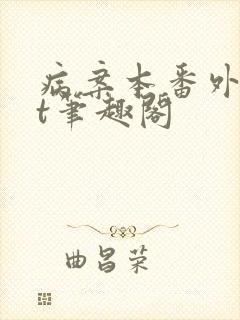 病案本番外
t笔趣阁
曲昌荣